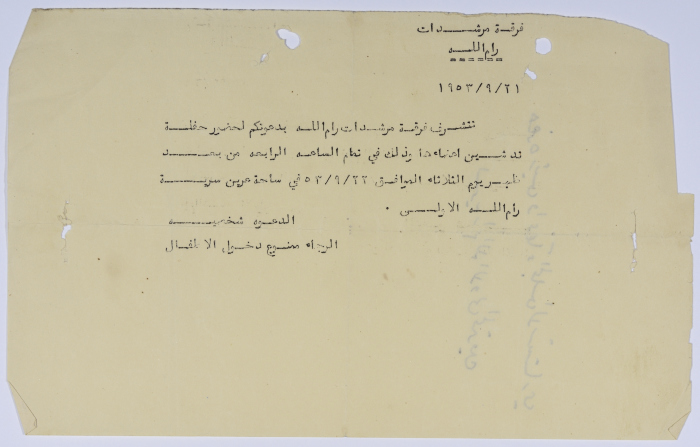 فرقة مرشدات
رام الله
١٩٥٣/٩/٢١
تتشرف فرقة مرشدات رام الله بدعوتكم لحضور حفلة
تدشين اعضاءها وذلك في تمام الساعه الرابعه من بعد
ظهر يوم الثلاثاء الموافق ٥٣/٩/٢٢ في ساحة عرين سرية
رام الله الاولى .
الدعوه شخصيه
الرجاء ممنوع دخول الاطفال